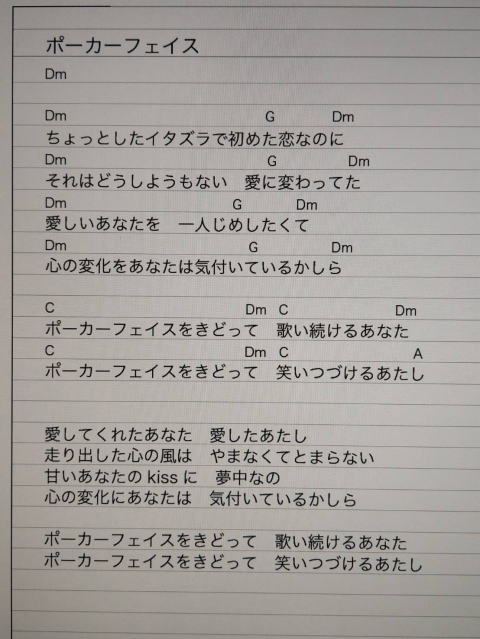 ポーカーフェイス
Dm
Dm G Dm
ちょっとしたイタズラで初めた恋なのに
Dm G Dm
それはどうしようもない 愛に変わってた
Dm G Dm
愛しいあなたを 一人じめしたくて
Dm G Dm
心の変化をあなたは気付いているかしら
C Dm C Dm
ポーカーフェイスをきどって 歌い続けるあなた
C Dm C A
ポーカーフェイスをきどって 笑いつづけるあたし
愛してくれたあなた 愛したあたし
走り出した心の風は やまなくてとまらない
甘いあなたの kiss に 夢中なの
心の変化にあなたは 気付いているかしら
ポーカーフェイスをきどって 歌い続けるあなた
ポーカーフェイスをきどって 笑いつづけるあたし